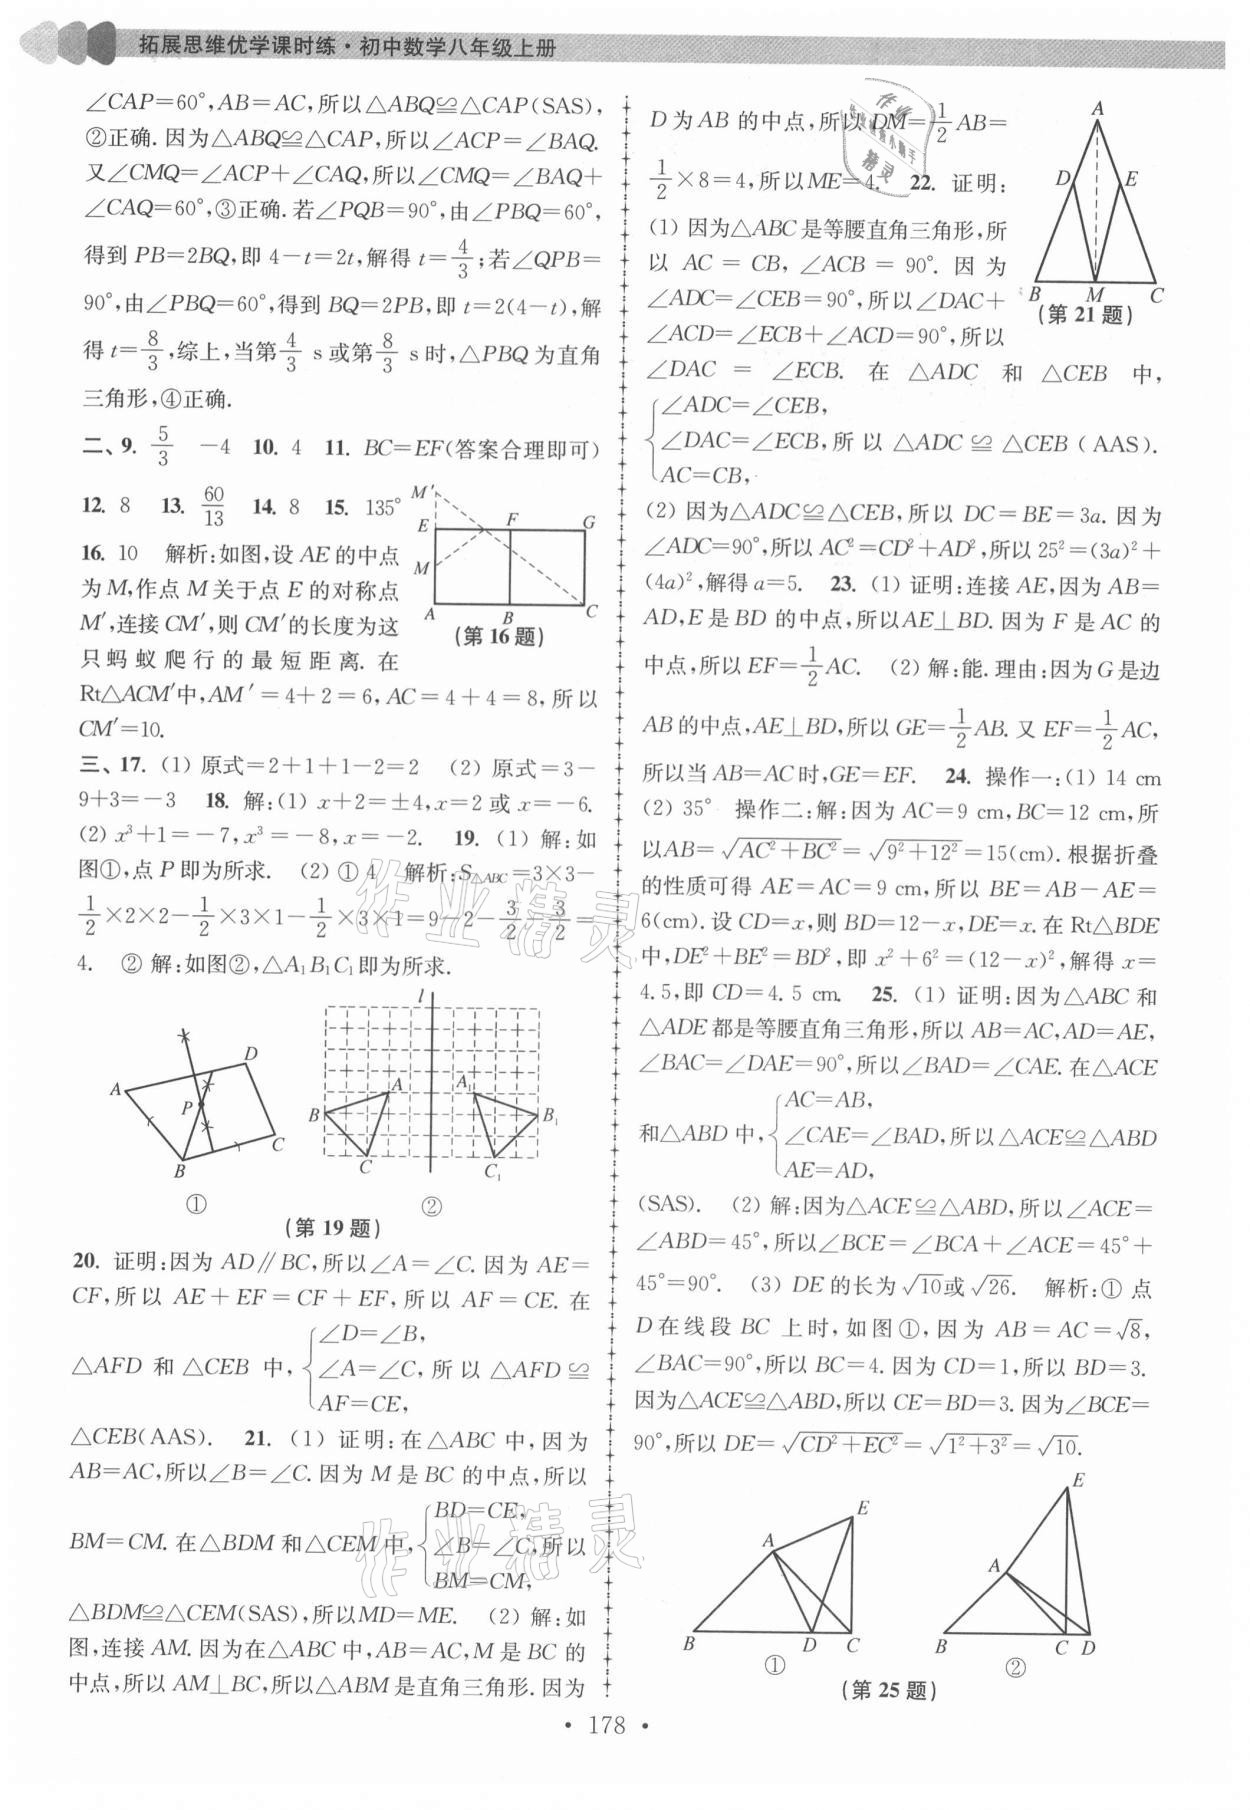 拓展思维优学课时练·初中数学八年级上册
∠CAP=60°,AB=AC,所以△ABQ≌△CAP(SAS),
②正确. 因为△ABQ≌△CAP,所以∠ACP=∠BAQ.
又∠CMQ=∠ACP+∠CAQ,所以∠CMQ=∠BAQ+
∠CAQ=60°,③正确.若∠PQB=90°,由∠PBQ=60°,
得到 PB=2BQ,即 4-t=2t,解得 t=4/3;若∠QPB=
90°,由∠PBQ=60°,得到 BQ=2PB,即 t=2(4-t),解
得 t=8/3,综上,当第 4/3 s或第 8/3 s时,△PBQ 为直角
三角形,④正确.
二、9. 5/3 -4 10. 4 11. BC=EF(答案合理即可)
12. 8 13. 60/13 14. 8 15. 135°
16. 10 解析:如图,设 AE 的中点
为 M,作点 M 关于点 E 的对称点
M′,连接 CM′,则 CM′的长度为这
只蚂蚁爬行的最短距离. 在
Rt△ACM′中,AM′=4+2=6,AC=4+4=8,所以
CM′=10.
M′
E F G
M
A B C
(第 16 题)
三、17. (1) 原式=2+1+1-2=2 (2) 原式=3-
9+3=-3 18. 解:(1) x+2=±4,x=2 或 x=-6.
(2) x³+1=-7,x³=-8,x=-2. 19. (1) 解:如
图①,点 P 即为所求. (2) ① 4 解析:S△ABC=3×3-
1/2×2×2-1/2×3×1-1/2×3×1=9-2-3/2-3/2=
4. ② 解:如图②,△A₁B₁C₁即为所求.
A D P B C
①
l
A A₁
B B₁
C C₁
②
(第 19 题)
20. 证明:因为 AD∥BC,所以∠A=∠C. 因为 AE=
CF,所以 AE+EF=CF+EF,所以 AF=CE. 在
∠D=∠B,
△AFD 和 △CEB 中,{∠A=∠C,所以 △AFD≌
AF=CE,
△CEB(AAS). 21. (1) 证明:在△ABC 中,因为
AB=AC,所以∠B=∠C. 因为 M 是 BC 的中点,所以
BD=CE,
BM=CM. 在△BDM 和△CEM 中,{∠B=∠C,所以
BM=CM,
△BDM≌△CEM(SAS),所以MD=ME. (2) 解:如
图,连接 AM. 因为在△ABC 中,AB=AC,M 是 BC 的
中点,所以 AM⊥BC,所以△ABM 是直角三角形. 因为
D 为 AB 的中点,所以 DM=1/2AB=
1/2×8=4,所以ME=4. 22. 证明:
(1) 因为△ABC 是等腰直角三角形,所
以 AC=CB,∠ACB=90°. 因为
∠ADC=∠CEB=90°,所以∠DAC+
∠ACD=∠ECB+∠ACD=90°,所以
A
D E
B M C
(第 21 题)
∠DAC=∠ECB. 在 △ADC 和 △CEB 中,
∠ADC=∠CEB,
{∠DAC=∠ECB,所以 △ADC≌△CEB(AAS).
AC=CB,
(2) 因为△ADC≌△CEB,所以 DC=BE=3a. 因为
∠ADC=90°,所以 AC²=CD²+AD²,所以25²=(3a)²+
(4a)²,解得 a=5. 23. (1) 证明:连接 AE,因为 AB=
AD,E 是 BD 的中点,所以AE⊥BD. 因为 F 是 AC 的
中点,所以 EF=1/2AC. (2) 解:能. 理由:因为 G 是边
AB 的中点,AE⊥BD,所以 GE=1/2AB. 又 EF=1/2AC,
所以当 AB=AC 时,GE=EF. 24. 操作一:(1) 14 cm
(2) 35° 操作二:解:因为 AC=9 cm,BC=12 cm,所
以AB=√(AC²+BC²)=√(9²+12²)=15(cm). 根据折叠
的性质可得 AE=AC=9 cm,所以 BE=AB-AE=
6(cm). 设 CD=x,则 BD=12-x,DE=x. 在 Rt△BDE
中,DE²+BE²=BD²,即 x²+6²=(12-x)²,解得 x=
4.5,即 CD=4.5 cm. 25. (1) 证明:因为△ABC 和
△ADE 都是等腰直角三角形,所以 AB=AC,AD=AE,
∠BAC=∠DAE=90°,所以∠BAD=∠CAE. 在△ACE
AC=AB,
和△ABD 中,{∠CAE=∠BAD,所以△ACE≌△ABD
AE=AD,
(SAS). (2) 解:因为△ACE≌△ABD,所以∠ACE=
∠ABD=45°,所以∠BCE=∠BCA+∠ACE=45°+
45°=90°. (3) DE 的长为 √10或 √26. 解析:① 点
D 在线段 BC 上时,如图①,因为 AB=AC=√8,
∠BAC=90°,所以 BC=4. 因为 CD=1,所以 BD=3.
因为△ACE≌△ABD,所以 CE=BD=3. 因为∠BCE=
90°,所以 DE=√(CD²+EC²)=√(1²+3²)=√10.
E
A
B D C
①
E
A
B C D
②
(第 25 题)
• 178 •
作业精灵
作业精灵
作业
精灵